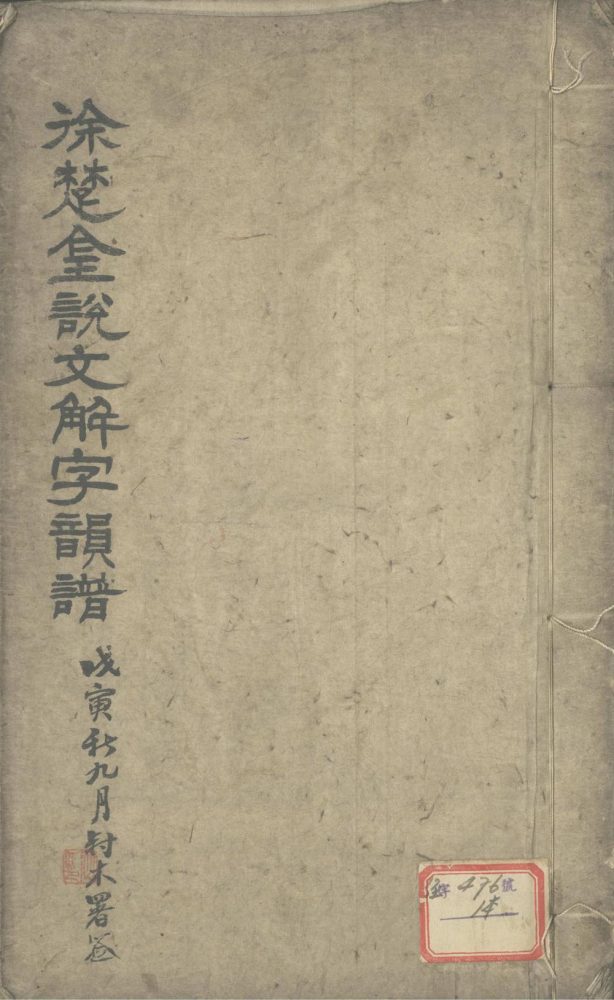 徐楚金說文解字韻譜
戊寅秋九月木署
字 476 號
1本